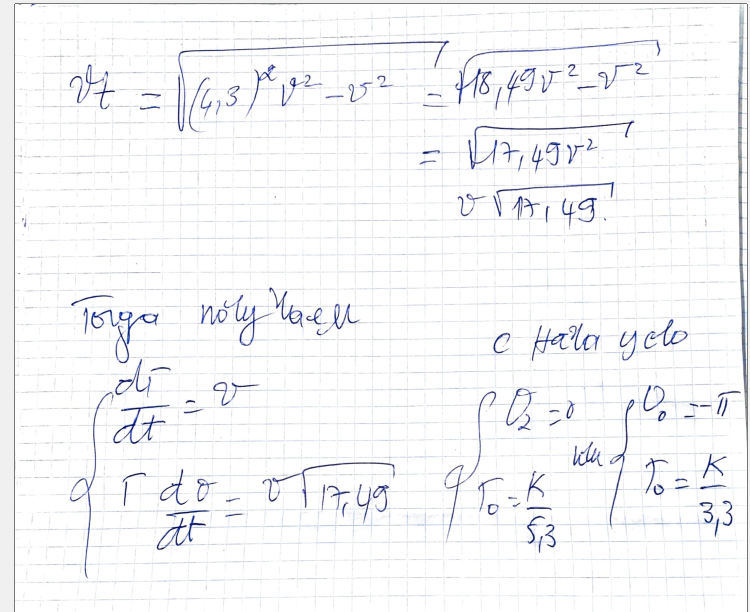 vt = √((4,3)² v² - v²) = √(18,49v² - v²)
= √(17,49v²)
v√17,49.
Тогда получаем
с нача усло
{ dr/dt = v
r dθ/dt = v√17,49
{ θ₂ = 0
r₀ = K/5,3
или
{ θ₀ = -π
r₀ = K/3,3